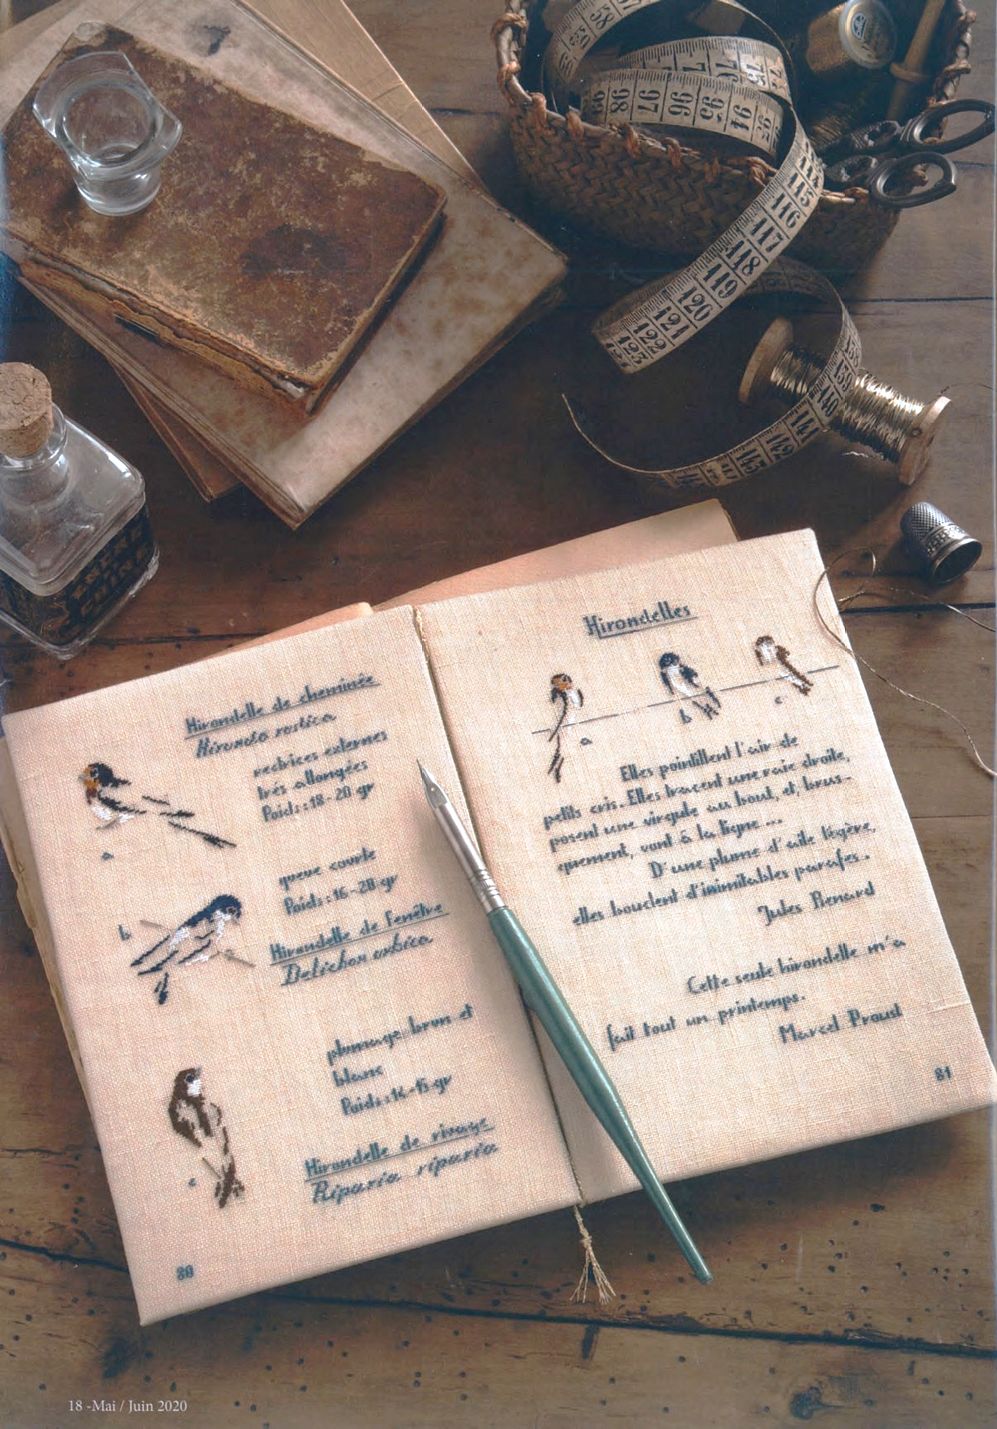 58
99
98
97
96
95
94
115
116
117
118
119
120
121
122
123
139
140
141
142
143
ENCRE
CHINE
Hirondelle de cheminée
Hirondo rustica
rectrices externes
très allongées
Poids : 18-20 gr
a
queue courte
Poids : 16-20 gr
b
Hirondelle de fenêtre
Delichon urbica
plumage brun et
blanc
Poids : 14-15 gr
c
Hirondelle de rivage
Riparia riparia
80
Hirondelles
a
b
c
Elles pointillent l'air de
petits cris. Elles tracent une raie droite,
posent une virgule au bout, et, brus-
quement, vont à la ligne ...
D'une plume d'aile légère,
elles bouclent d'inimitables parafes.
Jules Renard
Cette seule hirondelle m'a
fait tout un printemps.
Marcel Proust
81
18 -Mai / Juin 2020